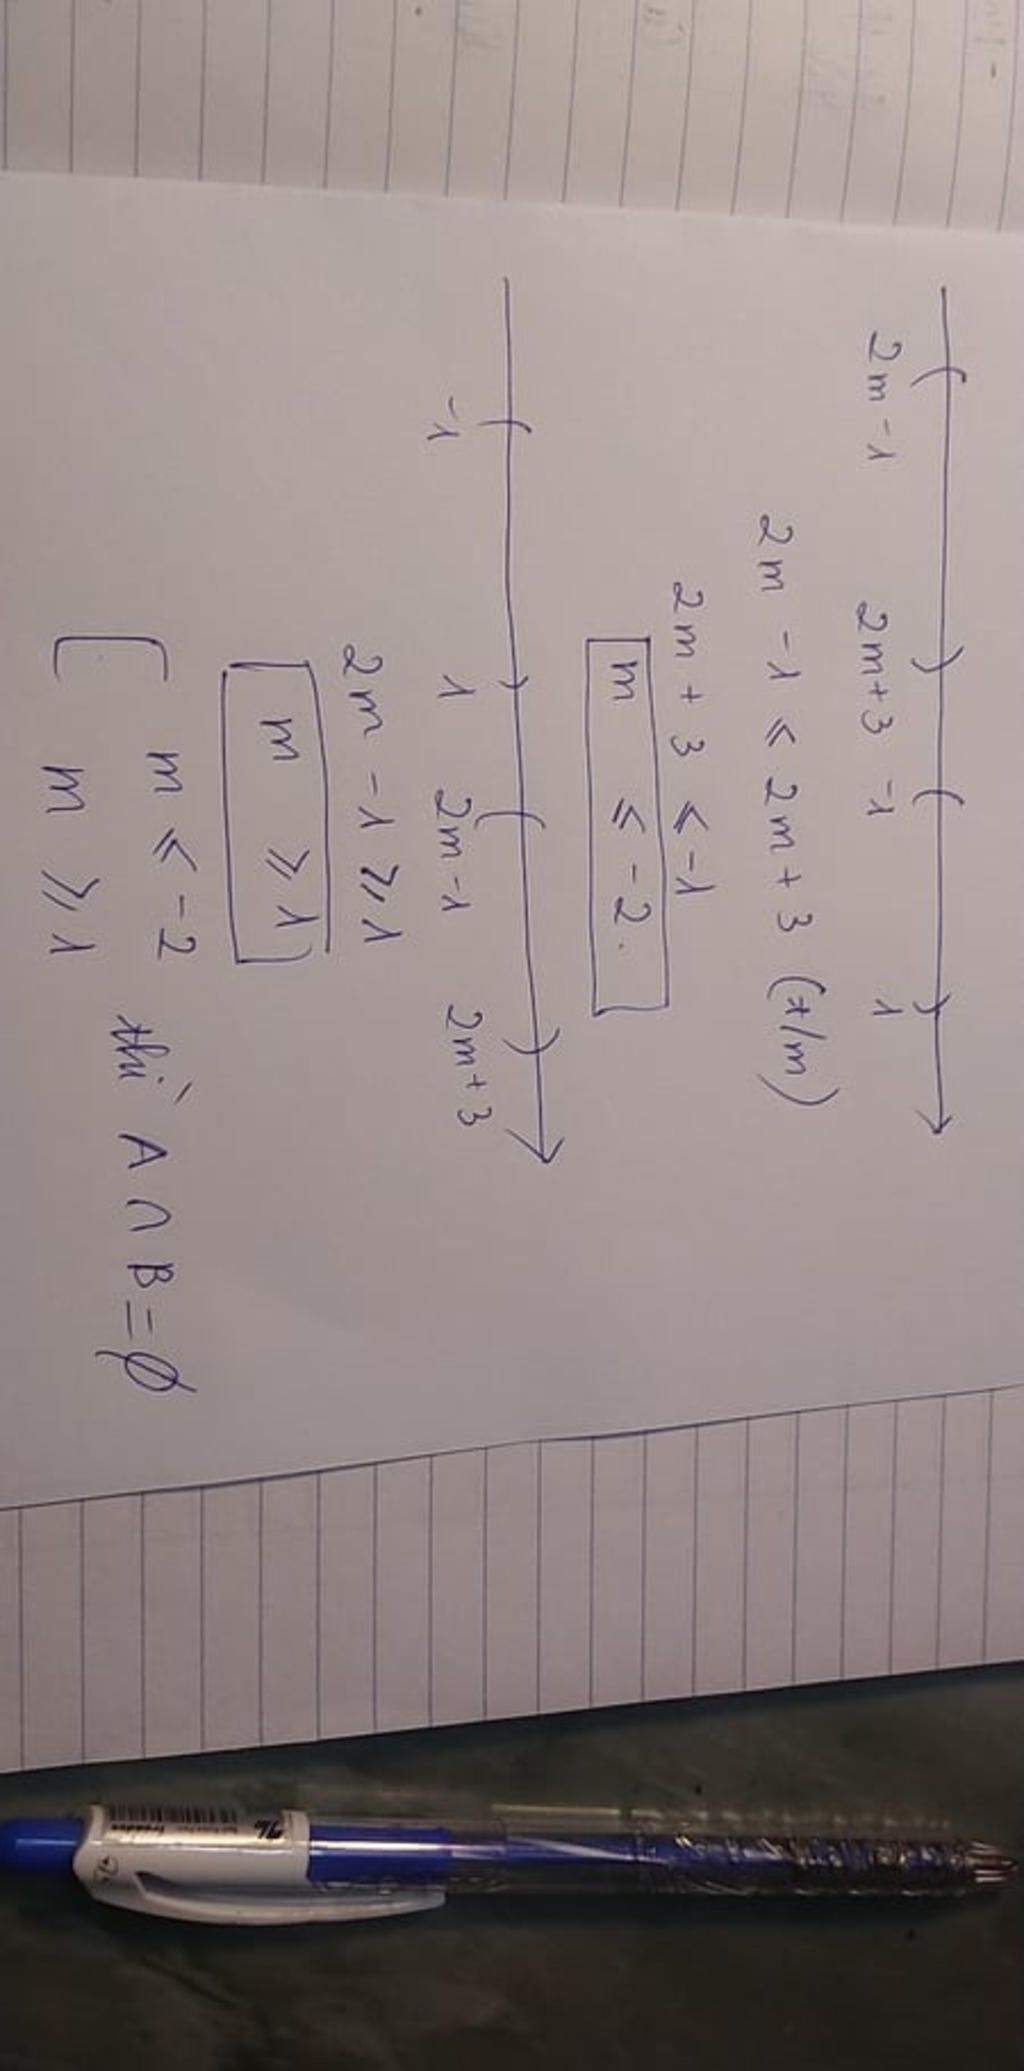 2m -1 2m+3 -1 1
2m -1 ≤ 2m + 3 (t/m)
2m + 3 ≤ -1
m ≤ -2.
-1 1 2m -1 2m+3
2m -1 ≥ 1
m ≥ 1
[ m ≤ -2
m ≥ 1 thì A ∩ B = ∅